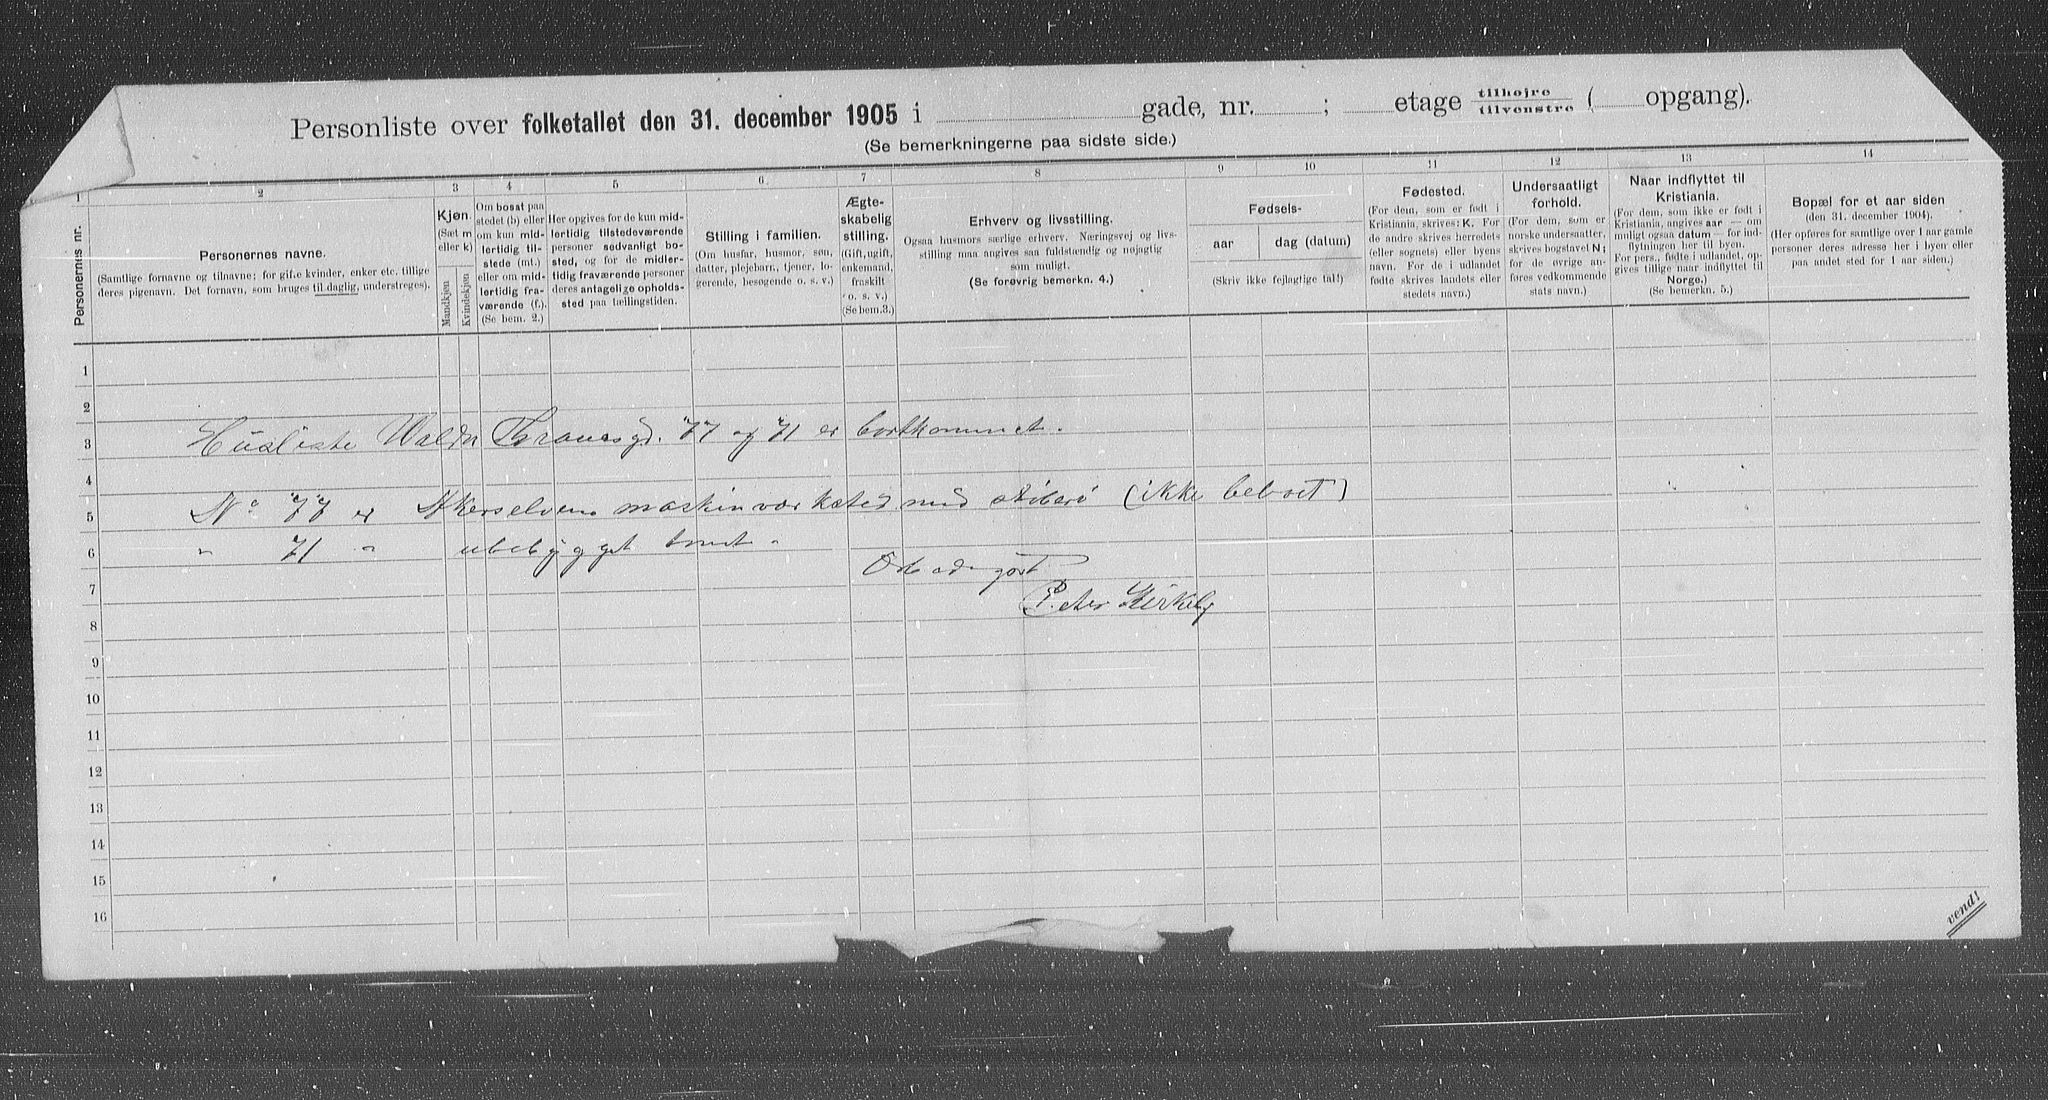 Personliste over folketallet den 31. december 1905 i gade, nr. ; etage tilhøjre ( opgang).
tilvenstre
(Se bemerkningerne paa sidste side.)
1 2 3 4 5 6 7 8 9 10 11 12 13 14
Personernes nr.
Personernes navne.
(Samtlige fornavne og tilnavne; for gifte kvinder, enker etc. tillige
deres pigenavn. Det fornavn, som bruges til daglig, understreges).
Kjøn.
(Sæt m
eller k)
Mandkjøn
Kvindekjøn
Om bosat paa
stedet (b) eller
om kun mid-
lertidig til-
stede (mt.)
eller om mid-
lertidig fra-
værende (f.).
(Se bem. 2.)
Her opgives for de kun mid-
lertidig tilstedeværende
personer sedvanligt bo-
sted, og for de midler-
tidig fraværende personer
deres antagelige opholds-
sted paa tællingstiden.
Stilling i familien.
(Om husfar, husmor, søn,
datter, plejebarn, tjener, lo-
gerende, besøgende o. s. v.)
Ægte-
skabelig
stilling.
(Gift, ugift,
enkemand,
fraskilt
o. s. v.)
(Se bem.3.)
Erhverv og livsstilling.
Ogsaa husmors særlige erhverv. Næringsvej og livs-
stilling maa angives saa fuldstændig og nøjagtig
som muligt.
(Se forøvrig bemerkn. 4.)
Fødsels-
aar
dag (datum)
(Skriv ikke fejlagtige tal!)
Fødested.
(For dem, som er født i
Kristiania, skrives: K. For
de andre skrives herredets
(eller sognets) eller byens
navn. For de i udlandet
fødte skrives landets eller
stedets navn.)
Undersaatligt
forhold.
(For dem, som er
norske undersaatter,
skrives bogstavet N;
for de øvrige an-
føres vedkommende
stats navn.)
Naar indflyttet til
Kristiania.
(For dem, som ikke er født i
Kristiania, angives aar — om
muligt ogsaa datum — for ind-
flytningen her til byen.
For pers., fødte i udlandet, op-
gives tillige naar indflyttet til
Norge.)
(Se bemerkn. 5.)
Bopæl for et aar siden
(den 31. december 1904).
(Her opføres for samtlige over 1 aar gamle
personer deres adresse her i byen eller
paa andet sted for 1 aar siden.)
1
2
3 Husliste Waldm Thranesgd. 77 og 71 er bortkommet.
4
5 No 77 er Akerselvens maskinværksted med støberi (ikke beboet)
6 " 71 " ubebygget tomt.
7
Peter Kirkeby
8
9
10
11
12
13
14
15
16
vend!